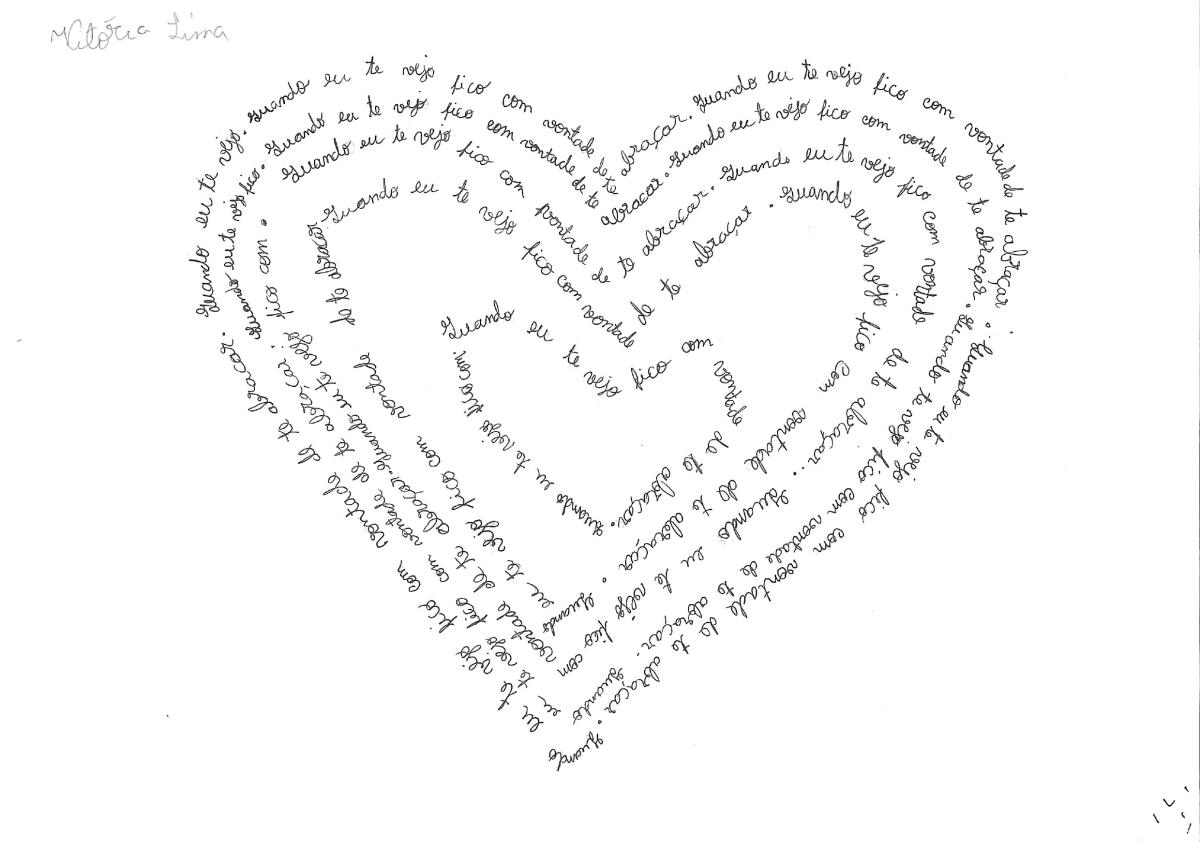 Vitória Lima
Quando eu te vejo fico com vontade de te abraçar. Quando eu te vejo fico com vontade de te abraçar. Quando eu te vejo fico com vontade de te abraçar. Quando eu te vejo fico com vontade de te abraçar. Quando eu te vejo.
Quando eu te vejo fico com vontade de te abraçar. Quando eu te vejo fico com vontade de te abraçar. Quando te vejo fico com vontade de te abraçar. Quando eu te vejo fico com vontade de te abraçar. Quando eu te vejo fico.
Quando eu te vejo fico com vontade de te abraçar. Quando eu te vejo fico com vontade de te abraçar. Quando eu te vejo fico com vontade de te abraçar. Quando eu te vejo fico com.
Quando eu te vejo fico com vontade de te abraçar. Quando eu te vejo fico com vontade de te abraçar. Quando eu te vejo fico com vontade de te abraçar
Quando eu te vejo fico com vontade de te abraçar. Quando eu te vejo fico com